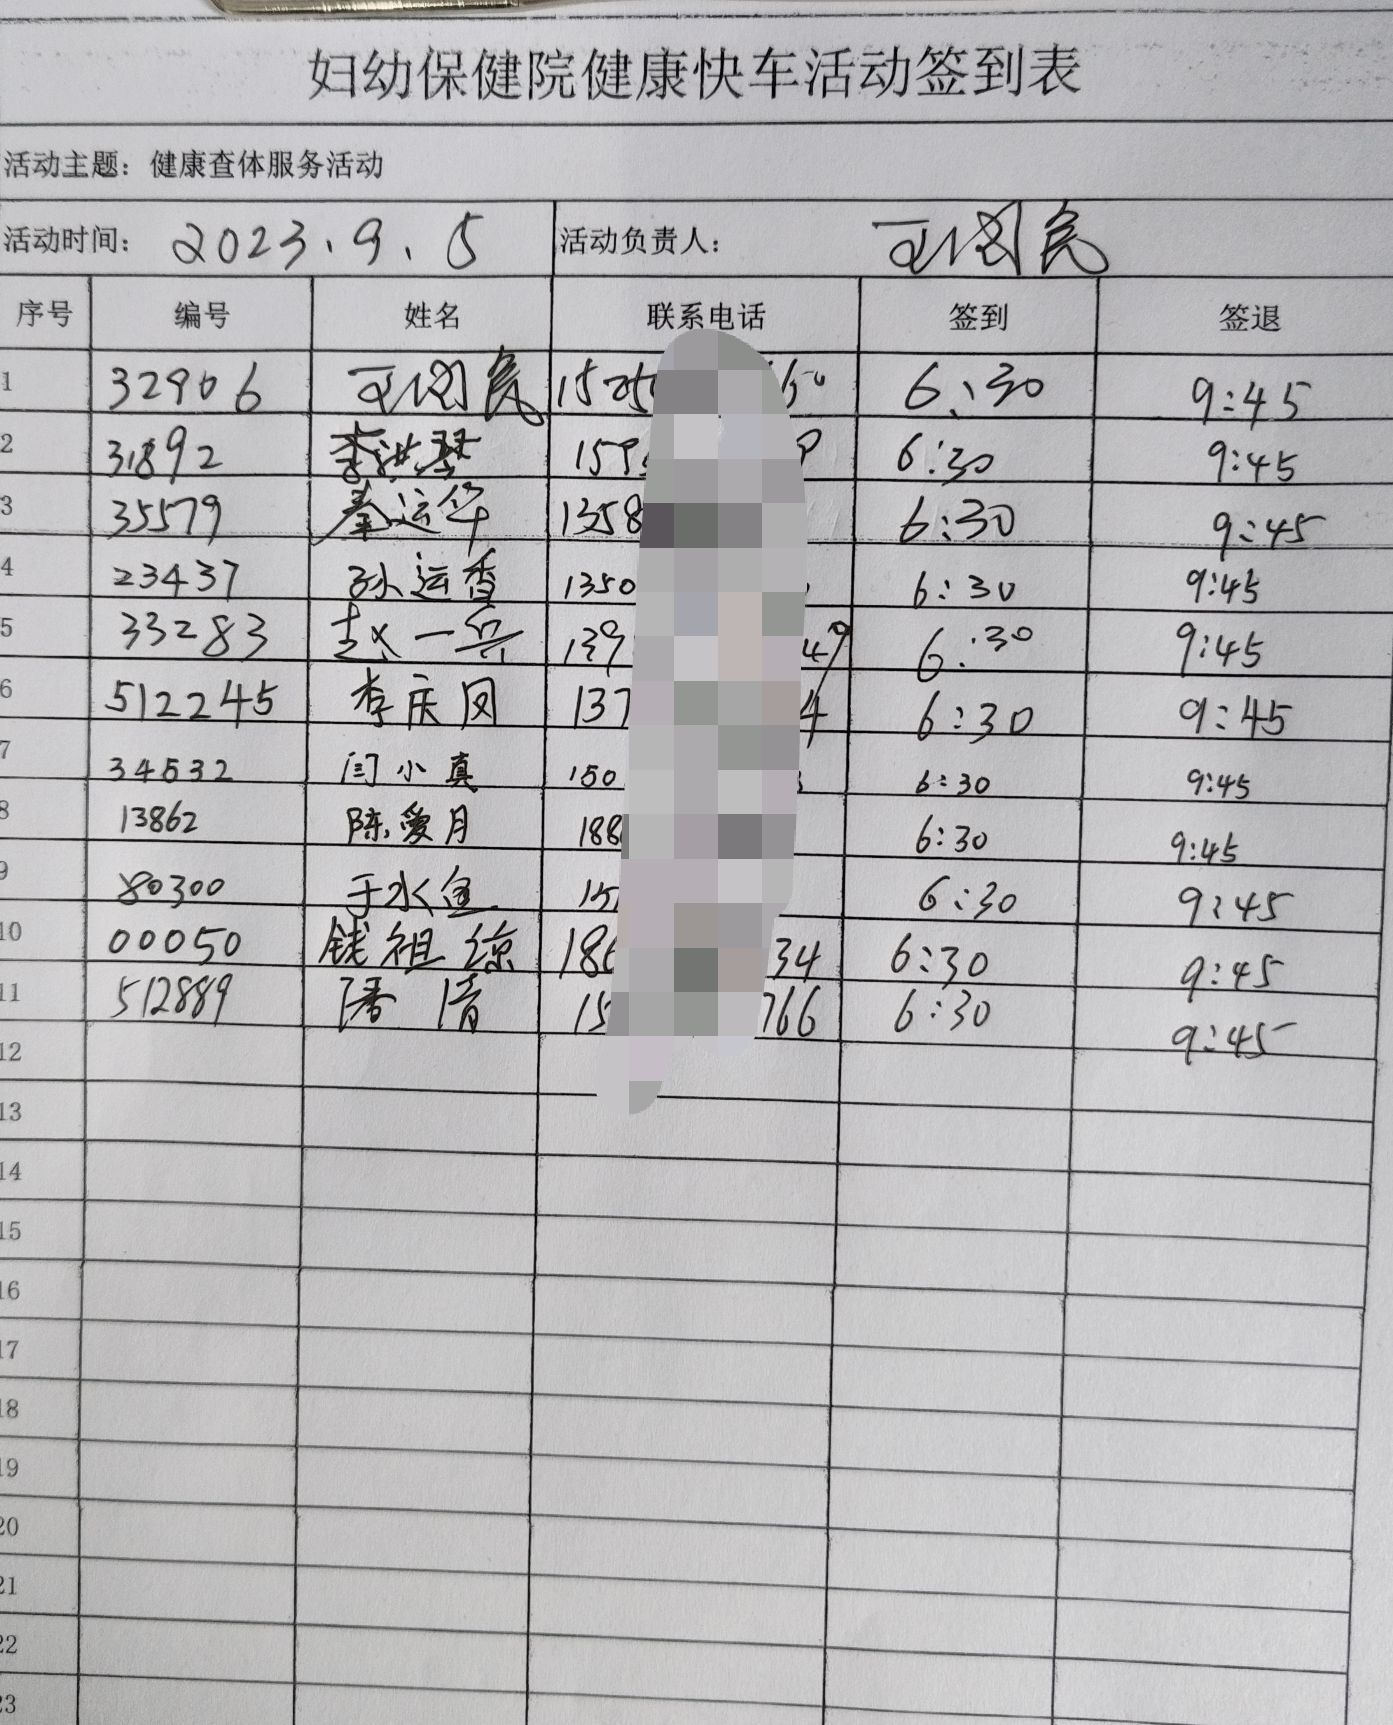 妇幼保健院健康快车活动签到表
活动主题：健康查体服务活动
活动时间： 2023.9.5 活动负责人：
序号 编号 姓名 联系电话 签到 签退
1 32906 6:30 9:45
2 31892 李洪琴 6:30 9:45
3 35579 秦运华 1358 6:30 9:45
4 23437 孙运香 1350 6:30 9:45
5 33283 赵一兵 139 49 6:30 9:45
6 512245 李庆凤 137 4 6:30 9:45
7 34532 闫小真 150 6:30 9:45
8 13862 陈爱月 188 6:30 9:45
9 80300 于水鱼 15 6:30 9:45
10 00050 钱祖琼 186 34 6:30 9:45
11 512889 潘清 15 766 6:30 9:45
12
13
14
15
16
17
18
19
20
21
22
23